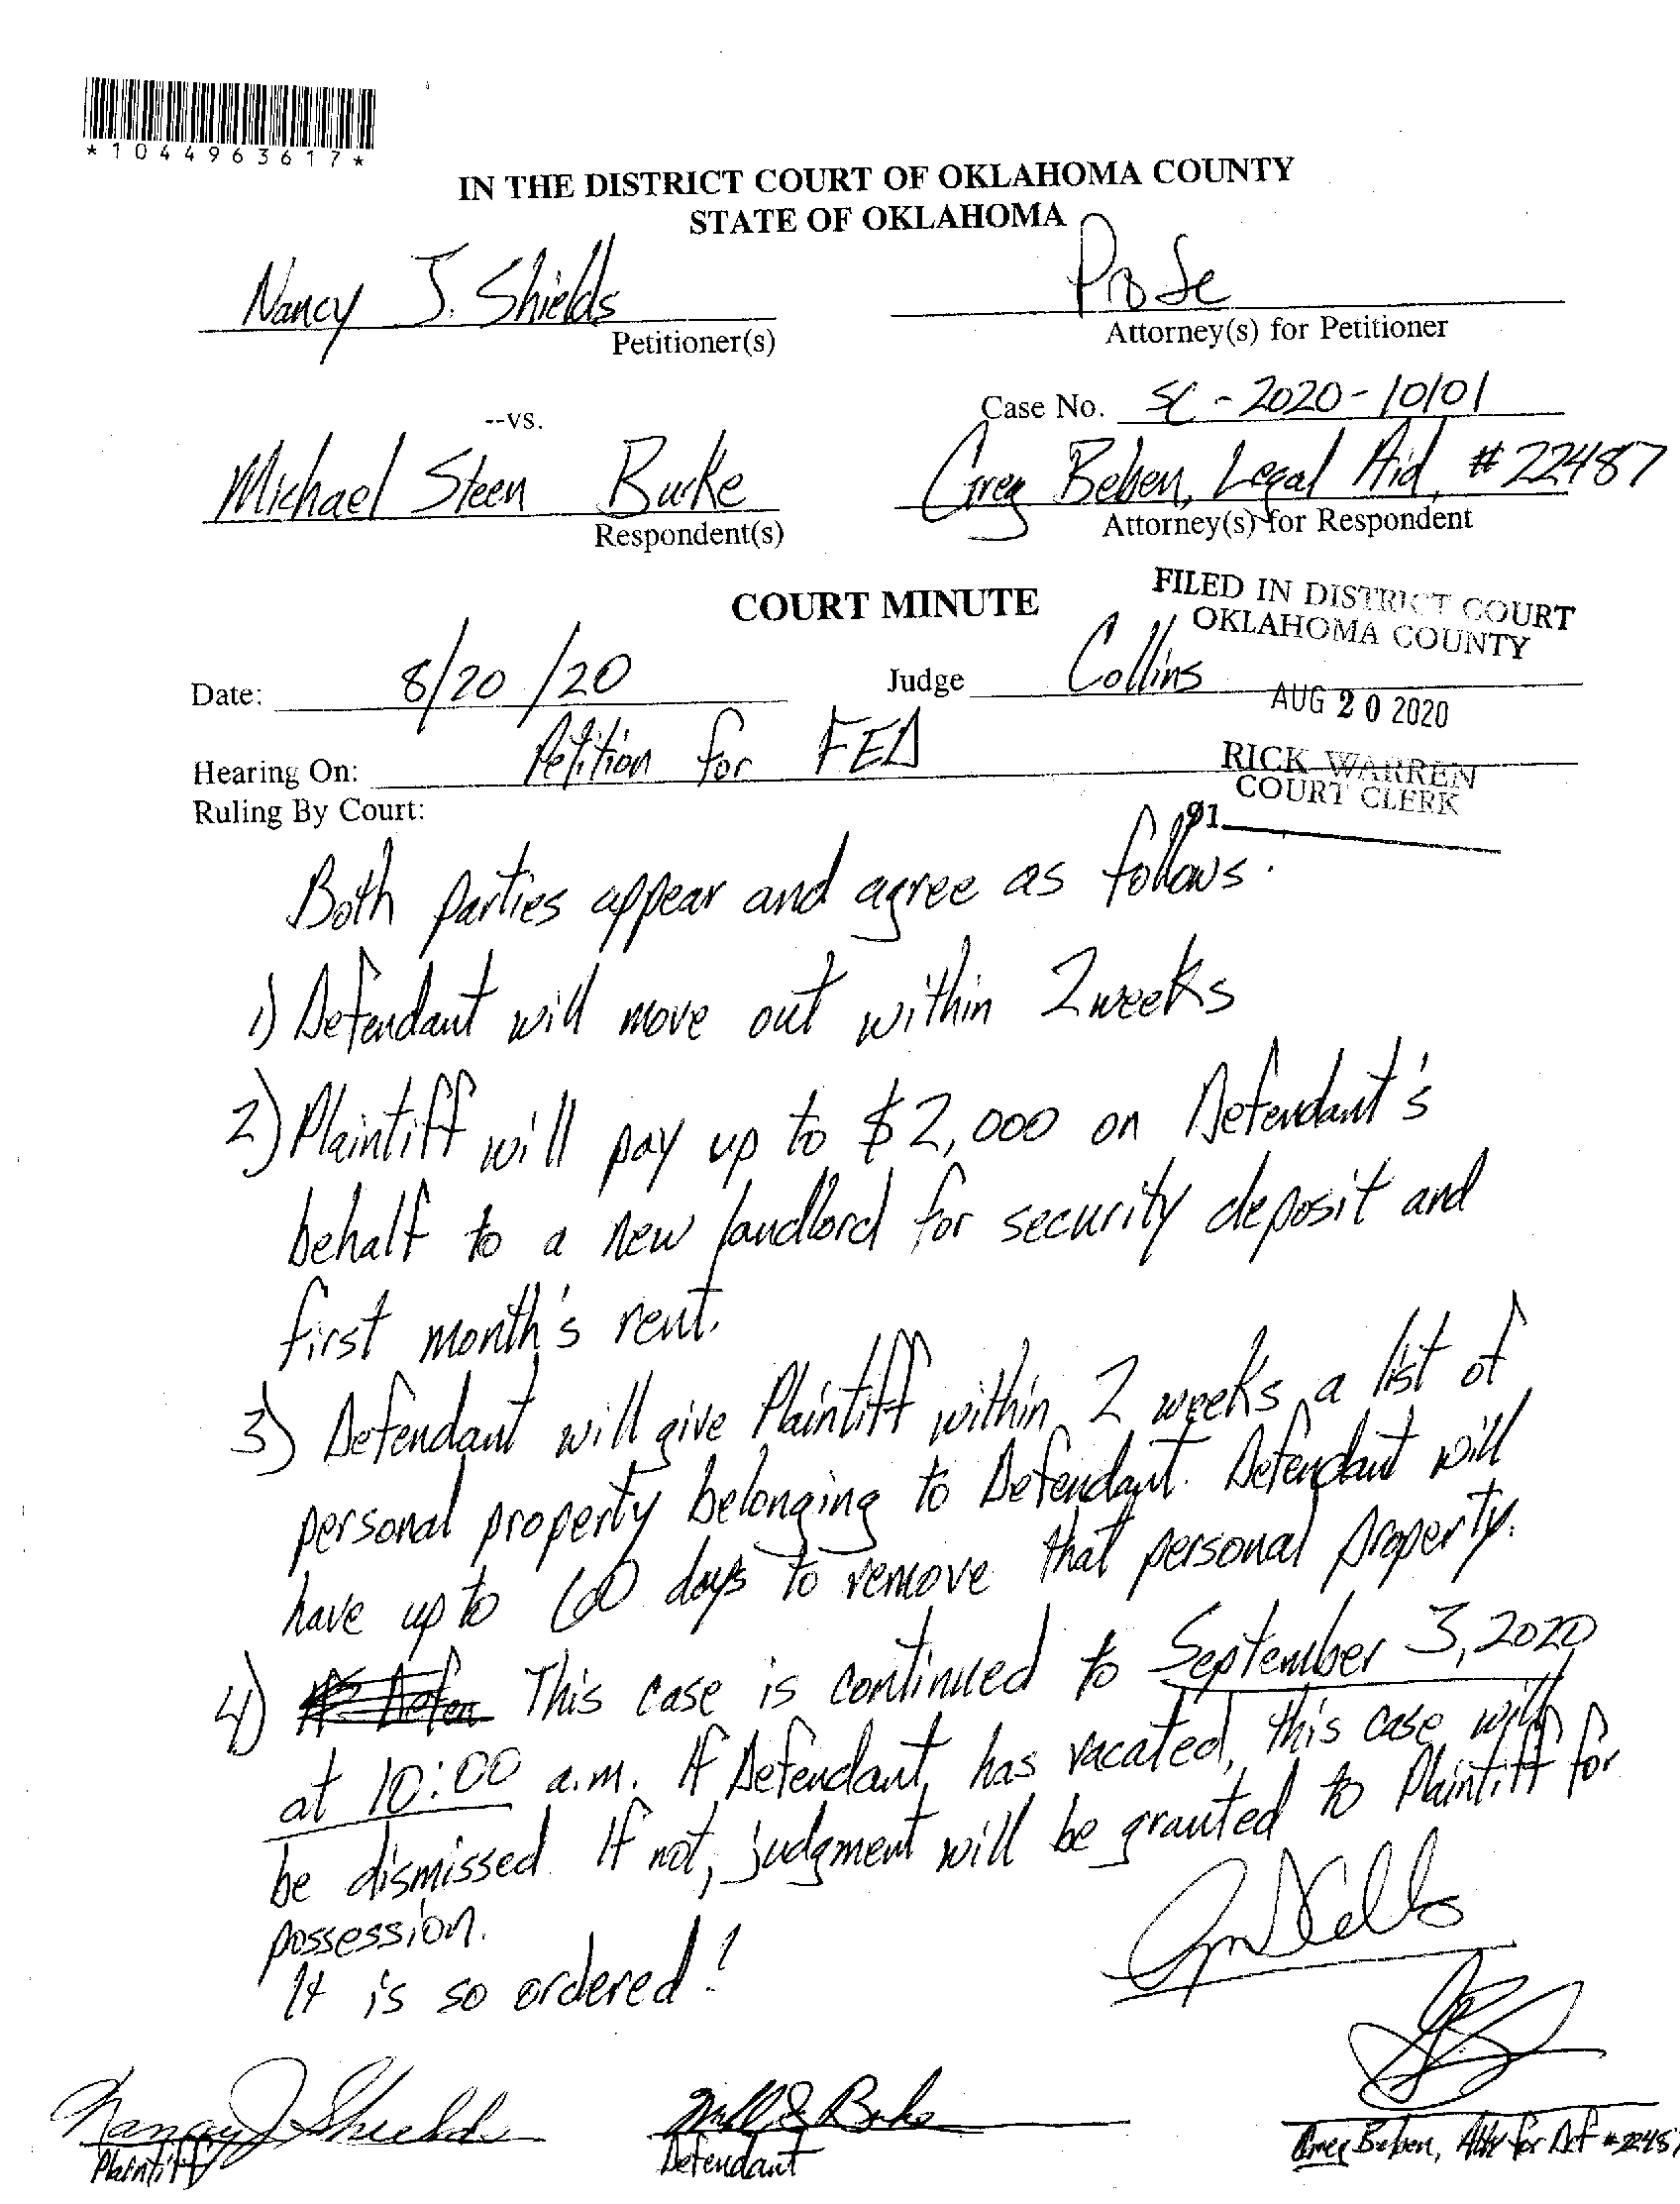 *1044963617*
IN THE DISTRICT COURT OF OKLAHOMA COUNTY
STATE OF OKLAHOMA
Nancy J. Shields
Petitioner(s)
Pro Se
Attorney(s) for Petitioner
--vs.
Case No. SC-2020-10101
Michael Steen Burke
Respondent(s)
Greg Beben, Legal Aid, #22487
Attorney(s) for Respondent
COURT MINUTE
FILED IN DISTRICT COURT
OKLAHOMA COUNTY
Date: 8/20/20
Judge Collins
AUG 20 2020
Hearing On: Petition for FED
RICK WARREN
COURT CLERK
Ruling By Court:
91
Both parties appear and agree as follows:
1) Defendant will move out within 2 weeks
2) Plaintiff will pay up to $2,000 on Defendant's
behalf to a new landlord for security deposit and
first month's rent.
3) Defendant will give Plaintiff within 2 weeks a list of
personal property belonging to Defendant. Defendant will
have up to 60 days to remove that personal property.
4) This case is continued to September 3, 2020
at 10:00 a.m. If Defendant has vacated, this case will
be dismissed. If not, judgment will be granted to Plaintiff for
possession.
It is so ordered!
Nancy J Shields
Plaintiff
Defendant
Greg Beben, Atty for Def #22487